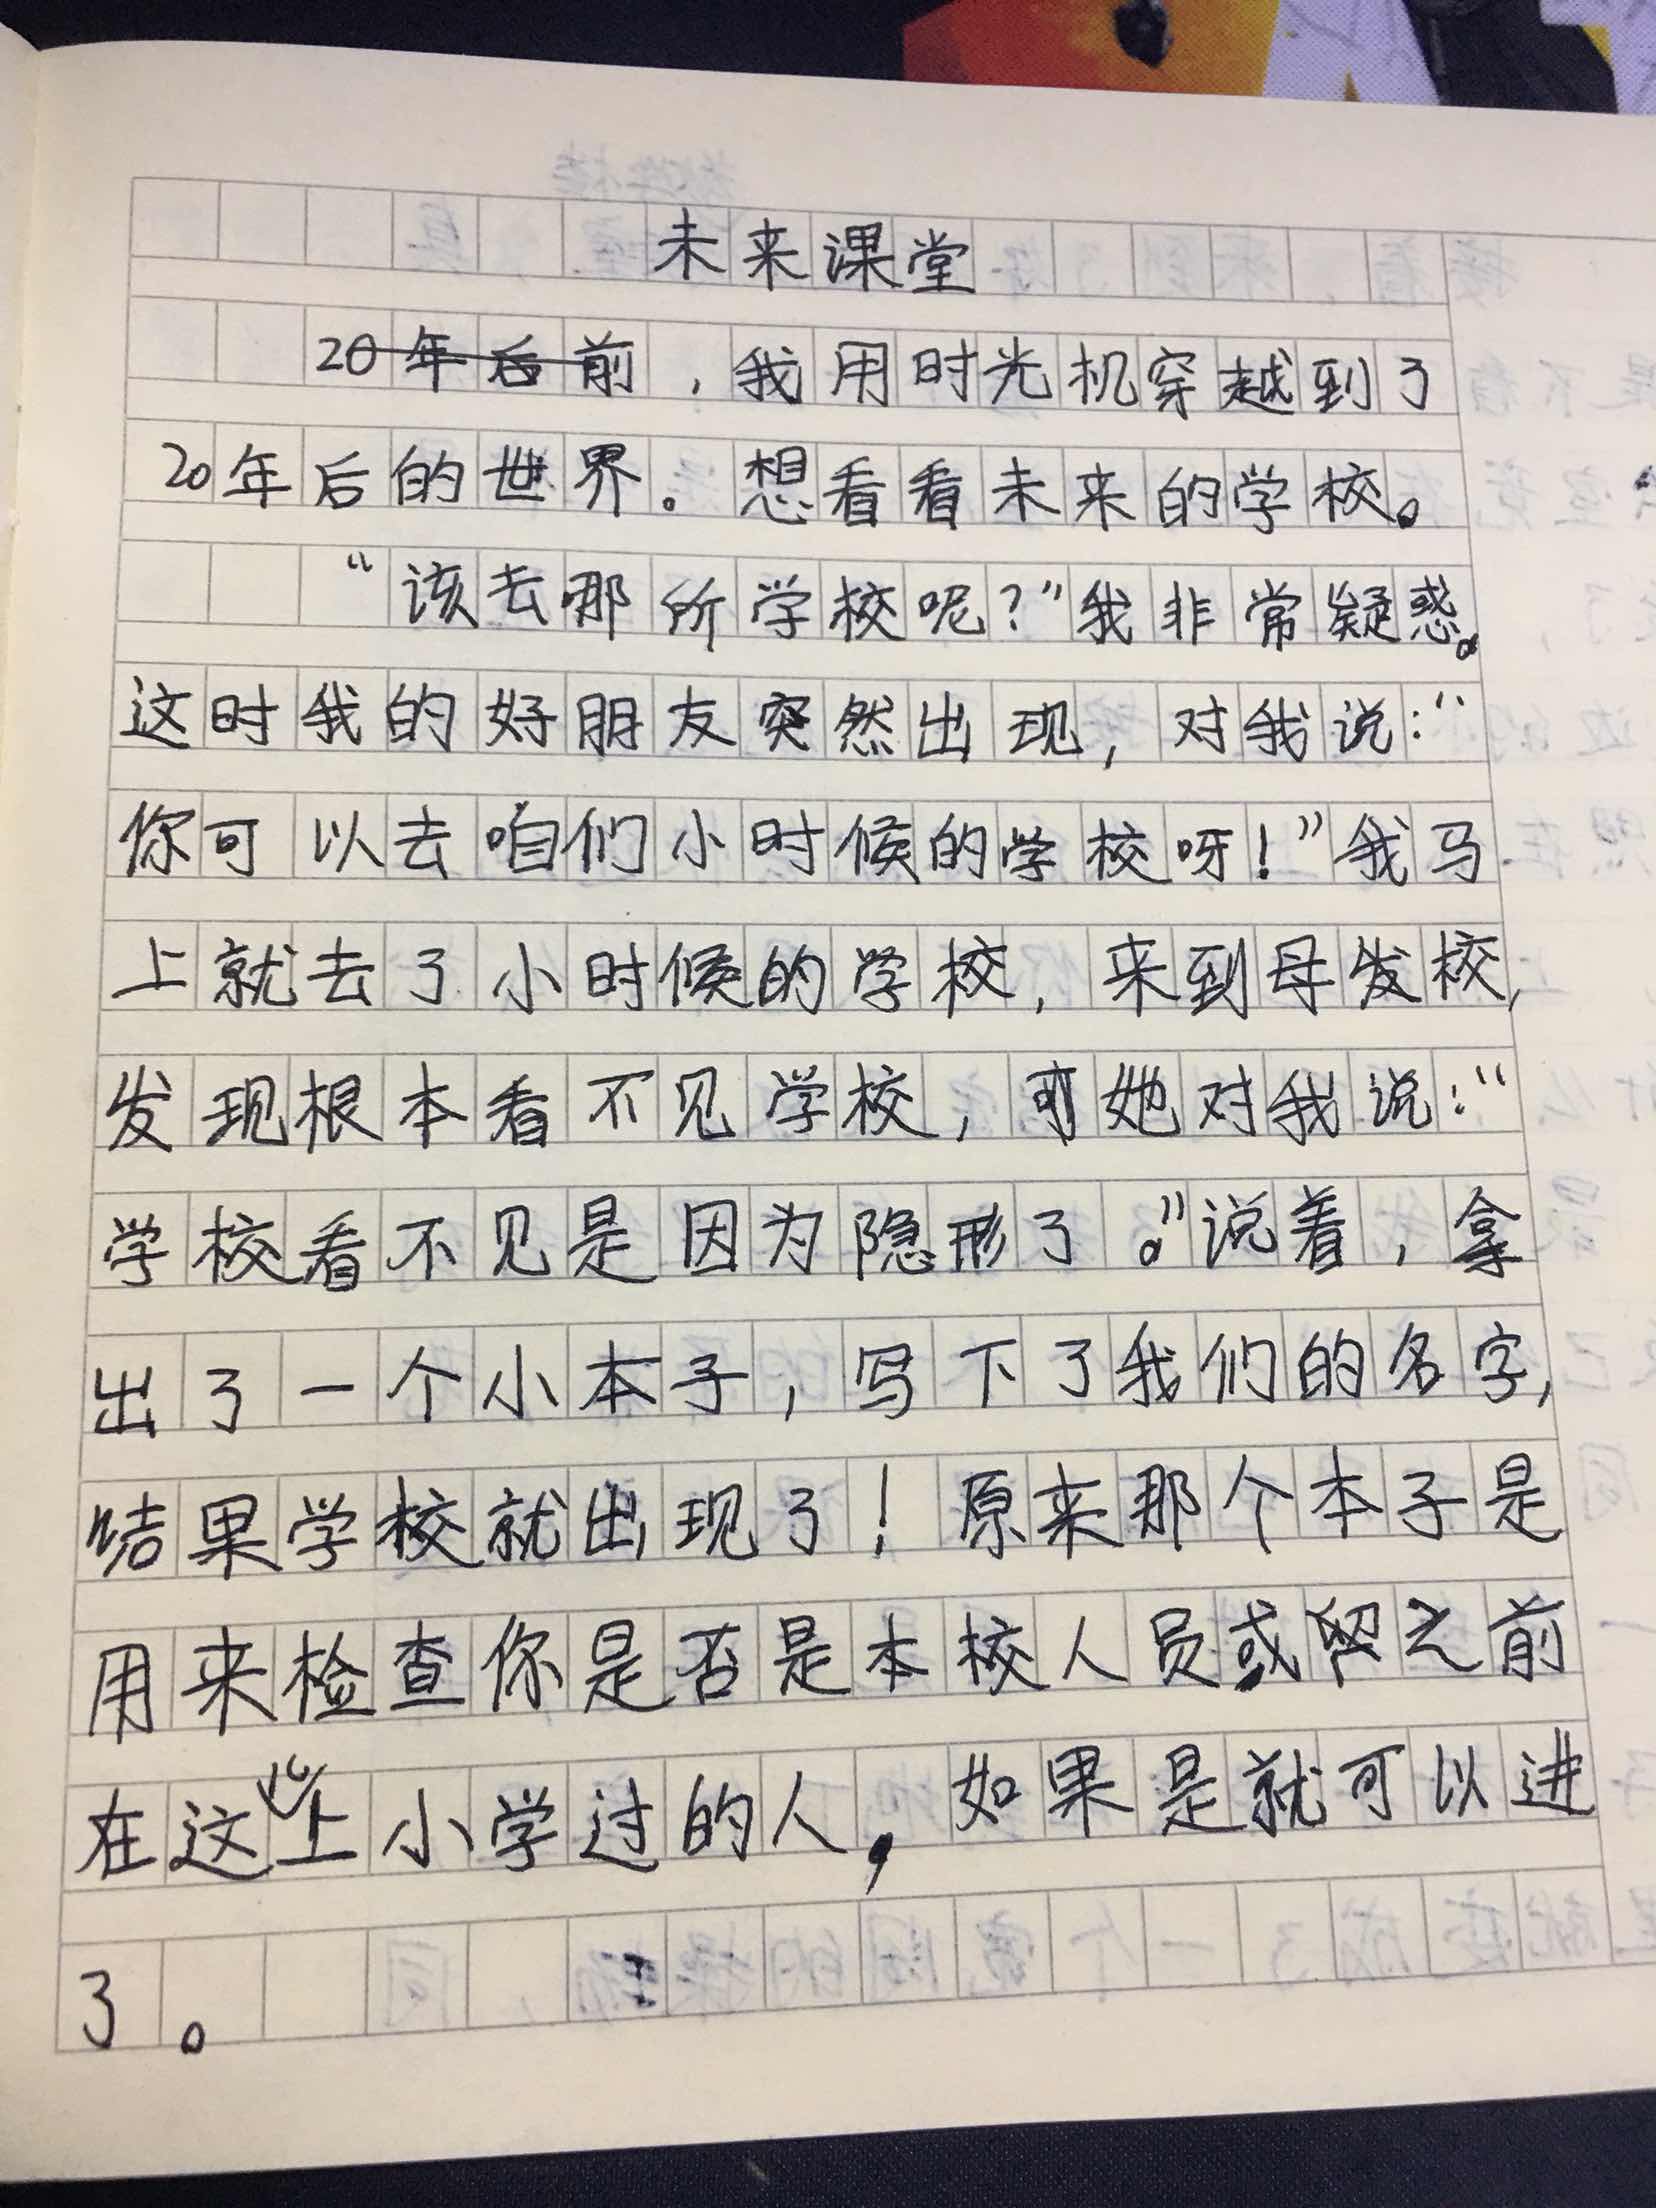 未来课堂
20年后前，我用时光机穿越到了
20年后的世界。想看看未来的学校。
“该去哪所学校呢？”我非常疑惑。
这时我的好朋友突然出现，对我说：“
你可以去咱们小时候的学校呀！”我马
上就去了小时候的学校，来到母发校，
发现根本看不见学校，可她对我说：“
学校看不见是因为隐形了。”说着，拿
出了一个小本子，写下了我们的名字，
结果学校就出现了！原来那个本子是
用来检查你是否是本校人员或之前
在这儿上小学过的人，如果是就可以进
了。